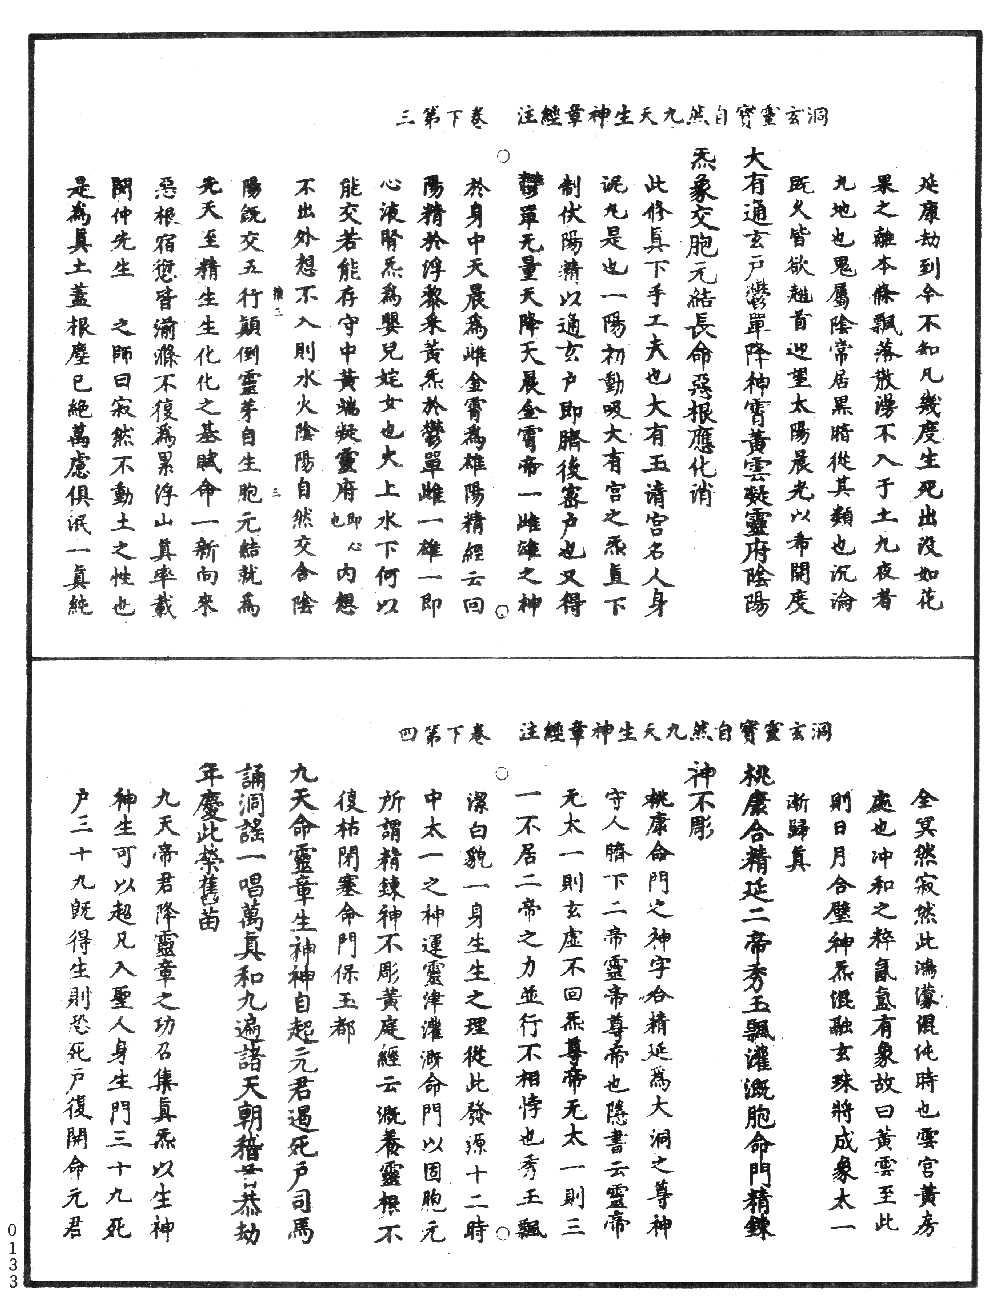 洞玄靈寳自然九天生神章經注　卷下第三
延康劫到今不知凡幾度生死出没如花
果之離本條飄落散漫不入于土九夜者
九地也鬼屬隂常居黑暗從其類也沉淪
既久皆欲翹首迎望太陽晨光以希開度
大有通玄戸鬱單降神霄黃雲凝靈府隂陽
炁象交胞元結長命惡根應化消
此修真下手工夫也大有玉清宮名人身
泥丸是也一陽初動吸大有宮之炁直下
制伏陽精以通玄戸即臍後密戸也又得
鬱單无量天降天晨金霄帝一雌雄之神
於身中天晨為雌金霄為雄陽精經云回
陽精於浮黎采黃炁於鬱單雌一雄一即
心液腎炁為嬰兒姹女也火上水下何以
能交若能存守中黃端凝靈府即心也内想
不出外想不入則水火隂陽自然交合隂
陽旣交五行顛倒靈芽自生胞元結就為
先天至精生生化化之基賦命一新向來
惡根宿愆皆湔滌不復為累浮山真率載
問仲先生　之師曰寂然不動土之性也
是為真土蓋根塵已絶萬慮俱泯一真純
洞玄靈寳自然九天生神章經注　卷下第四
全冥然寂然此鴻濛混沌時也雲宮黃房
處也冲和之粹氤氳有象故曰黃雲至此
則日月合璧神炁混融玄珠將成象太一
漸歸真
桃康合精延二帝秀玉飄灌漑胞命門精鍊
神不彫
桃康命門之神字合精延為大洞之尊神
守人臍下二帝靈帝尊帝也隱書云靈帝
无太一則玄虛不回炁尊帝无太一則三
一不居二帝之力並行不相悖也秀玉飄
潔白貌一身生生之理從此發源十二時
中太一之神運靈津灌漑命門以固胞元
所謂精鍊神不彫黃庭經云漑養靈根不
復枯閉塞命門保玉都
九天命靈章生神神自起元君遏死戸司馬
誦洞謡一唱萬真和九遍諸天朝稽首恭劫
年慶此榮舊苗
九天帝君降靈章之功召集真炁以生神
神生可以超凡入聖人身生門三十九死
戸三十九旣得生則恐死戸復開命元君
0133